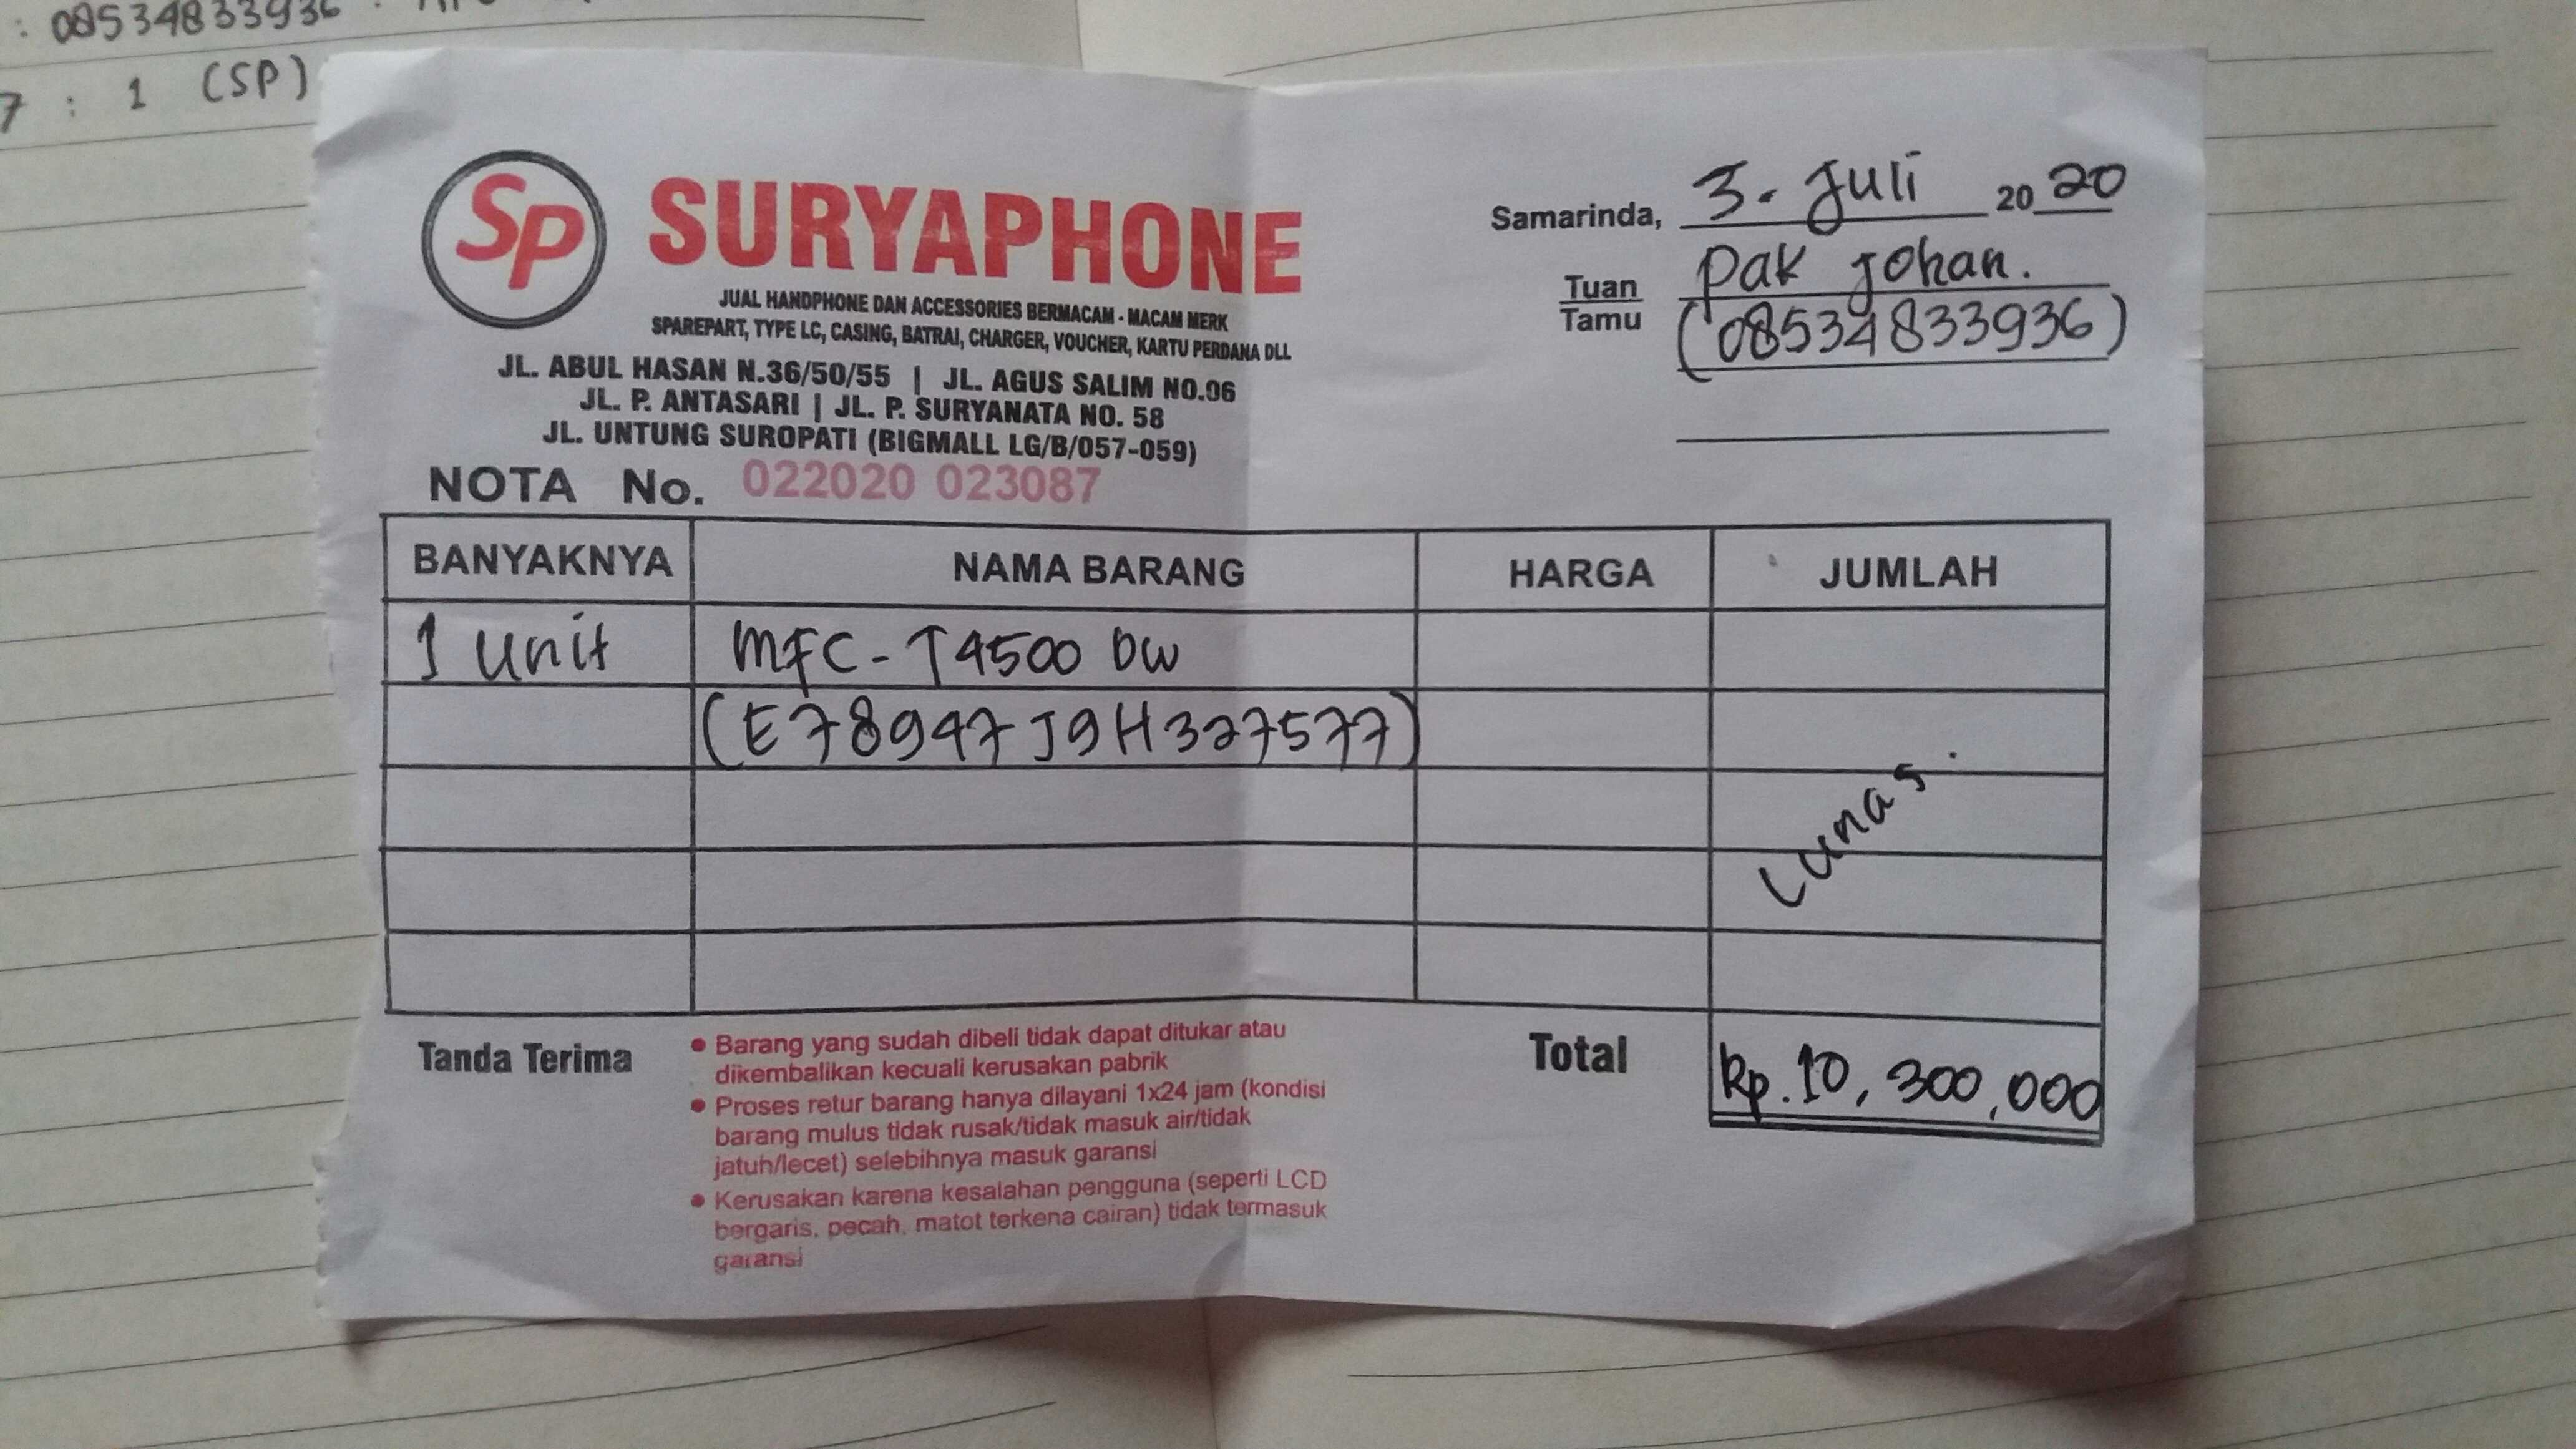 : 08534833936
7 : 1 (SP)
SP SURYAPHONE
JUAL HANDPHONE DAN ACCESSORIES BERMACAM - MACAM MERK
SPAREPART, TYPE LC, CASING, BATRAI, CHARGER, VOUCHER, KARTU PERDANA DLL
JL. ABUL HASAN N.36/50/55 | JL. AGUS SALIM NO.06
JL. P. ANTASARI | JL. P. SURYANATA NO. 58
JL. UNTUNG SUROPATI (BIGMALL LG/B/057-059)
NOTA No. 022020 023087
Samarinda, 3. Juli 2020
Tuan Pak Johan.
Tamu (08534833936)
BANYAKNYA NAMA BARANG HARGA JUMLAH
1 Unit MFC-T4500 DW
(E78947J9H327577)
Lunas.
Tanda Terima
• Barang yang sudah dibeli tidak dapat ditukar atau
dikembalikan kecuali kerusakan pabrik
• Proses retur barang hanya dilayani 1x24 jam (kondisi
barang mulus tidak rusak/tidak masuk air/tidak
jatuh/lecet) selebihnya masuk garansi
• Kerusakan karena kesalahan pengguna (seperti LCD
bergaris, pecah, matot terkena cairan) tidak termasuk
garansi
Total Rp. 10,300,000